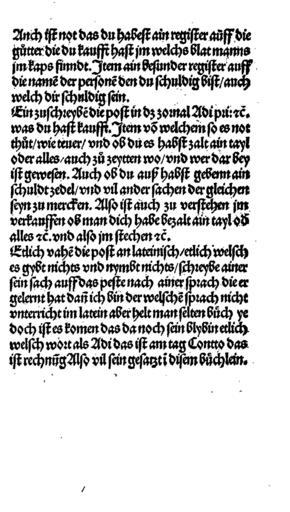 Auch ist not das du habest ain register auff die
gůtter die du kaufft hast jm welchs blat manns
jm kaps finndt. Jtem ain besunder register auff
die namē der personē den du schuldig bist/auch
welch dir schuldig sein.
Ein zuschreybē die post in dz zornal Adi prī: ꝛc̄.
was du hast kaufft. Jtem vō welchem so es not
thůt/wie teuer/vnd ob du es habst zalt ain tayl
oder alles/auch zů zeytten wo/vnd wer dar bey
ist gewesen. Auch ob du auf habst gebenn ain
schuldt zedel/vnd vil ander sachen der gleichen
seyn zu mercken. Also ist auch zu verstehen jm
verkauffen ob man dich habe bezalt ain tayl od
alles ꝛc̄. vnd also jm stechen ꝛc̄.
Etlich vahē die post an lateinisch/etlich welsch
es gybt nichts vnd nymbt nichts/schreybe ainer
sein sach auff das peste nach ainer sprach die er
gelernt hat dañ ich bin der welschē sprach nicht
vnterricht im latein aber helt man selten bůch ye
doch ist es komen das da noch sein blybin etlich
welsch wort als Adi das ist am tag Contto das
ist rechnūg Also vil sein gesatzt i disem bůchlein.